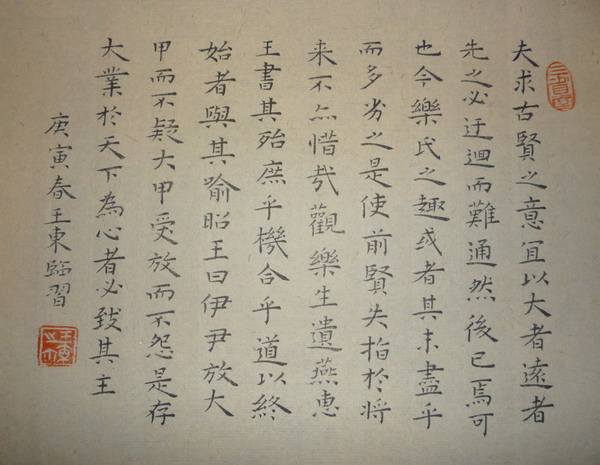 夫求古賢之意宜以大者遠者
先之必迂迴而難通然後已焉可
也今樂氏之趣或者其未盡乎
而多劣之是使前賢失指於將
来不亦惜哉觀樂生遺燕惠
王書其殆庶乎機合乎道以終
始者與其喻昭王曰伊尹放大
甲而不疑大甲受放而不怨是存
大業於天下為心者必致其主
庚寅春王東臨習